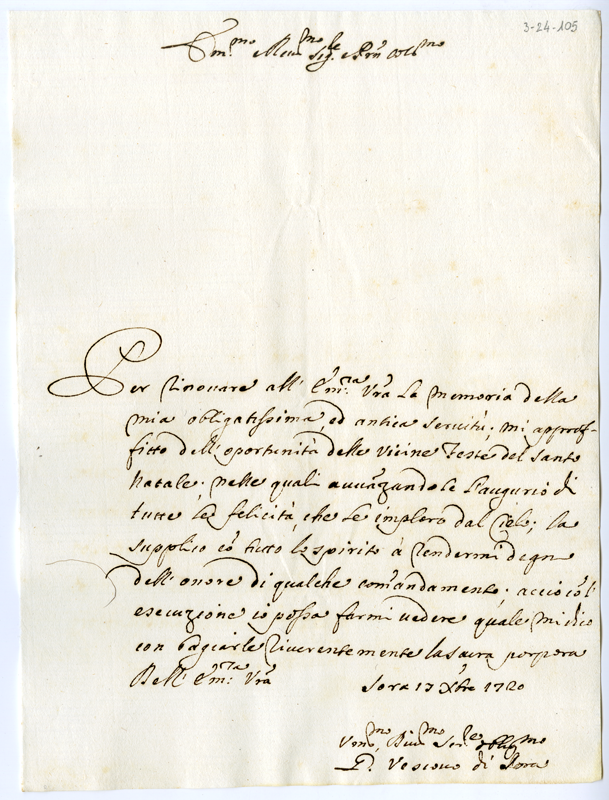 3-24-105
Em.mo Rev.mo Sig.re P.rn Col.mo
Per rinovare all' Em.za Vrã la memoria della
mia obligatissima, ed antica servitù, mi approf-
fitto dell' oportunità delle vicine Feste del Santo
Natale: nelle quali avvãzandole l'augurio di
tutte le felicità, che le imploro dal Cielo; la
supplico cõ tutto lo spirito à rendermi degno
dell' onore di qualche com̃andamento; acciò cõ l'
esecuzione io possa farmi vedere quale mi dico
con bagiarle riverentemente la sacra porpora
Dell' Em.za Vrã Sora 17 Xbre 1720
Div.mo Ser.re obblig.mo
Vescovo di Sora